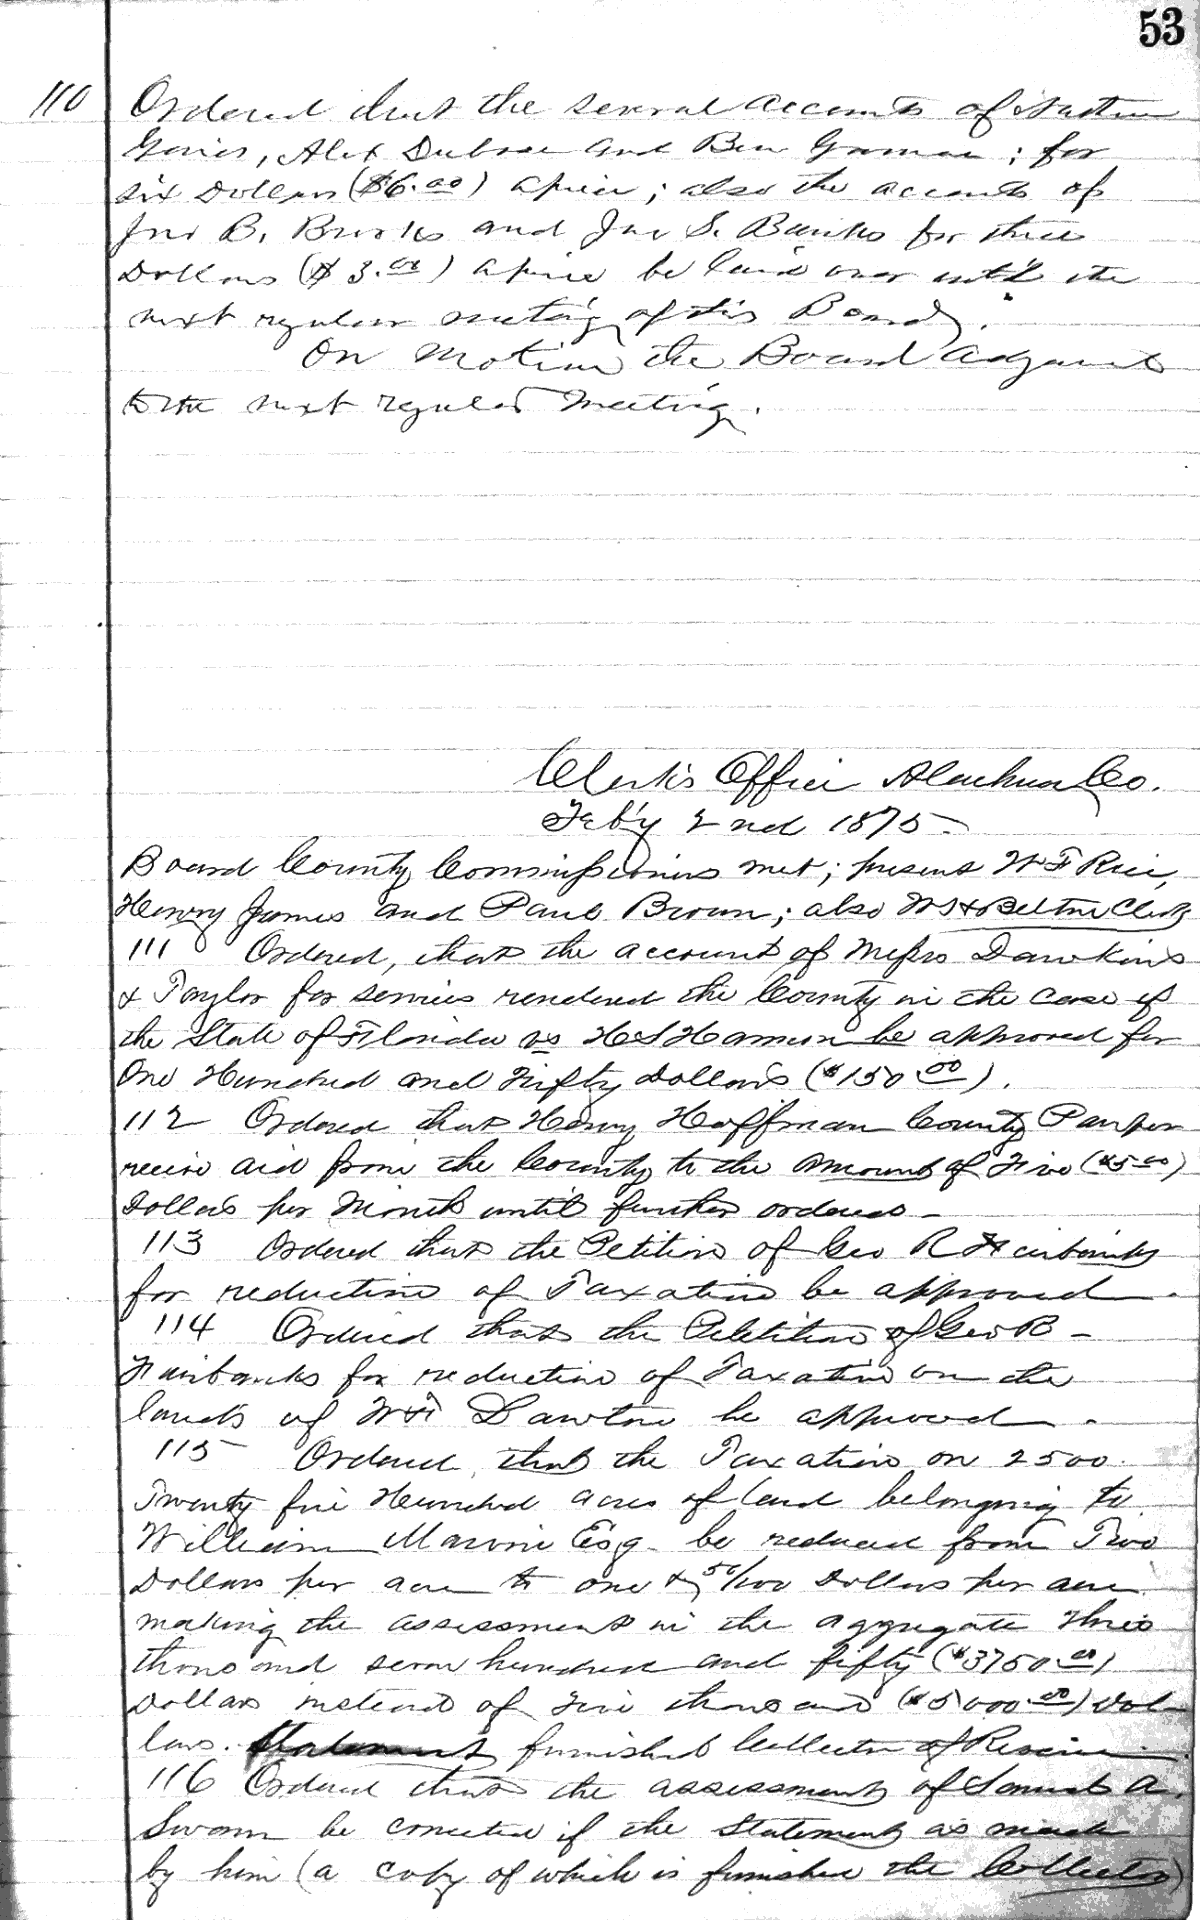 53
110 Ordered that the several accounts of
Alex Dubose and Ben ; for
six Dollars ($6.00) apiece; also the accounts of
Jno B. Brooks and Jno S. Banks for three
Dollars ($3.00) apiece be laid over until the
next regular meeting of this Board.
On Motion the Board Adjourned
to the next regular Meeting.
Clerk's Office Alachua Co.
Feb'y 2nd 1875
Board County Commissioners met; present W F Rice,
Henry James and Paul Brown; also Belton Clerk
111 Ordered, that the account of Messrs Dawkins
& Taylor for services rendered the County in the case of
the State of Florida vs H S Harmon be approved for
One Hundred and Fifty Dollars ($150.00).
112 Ordered that Henry Hoffman County Pauper
receive aid from the County to the amount of Five ($5.00)
Dollars per Month until further orders
113 Ordered that the Petition of Geo R Fairbanks
for reduction of Taxation be approved.
114 Ordered that the Petition of Geo R
Fairbanks for reduction of Taxation on the
lands of Lawton be approved.
115 Ordered that the Taxation on 2500
Twenty five Hundred acres of land belonging to
William Marvin Esq. be reduced from Two
Dollars per acre to one & 50/100 Dollars per acre
making the assessment in the aggregate three
thousand seven hundred and fifty ($3750.00)
Dollars instead of Five thousand ($5000.00) Dol-
lars. Statement furnished Collector of Revenue.
116 Ordered that the assessment of Samuel A.
Swann be corrected if the Statement as made
by him (a copy of which is furnished the Collector)